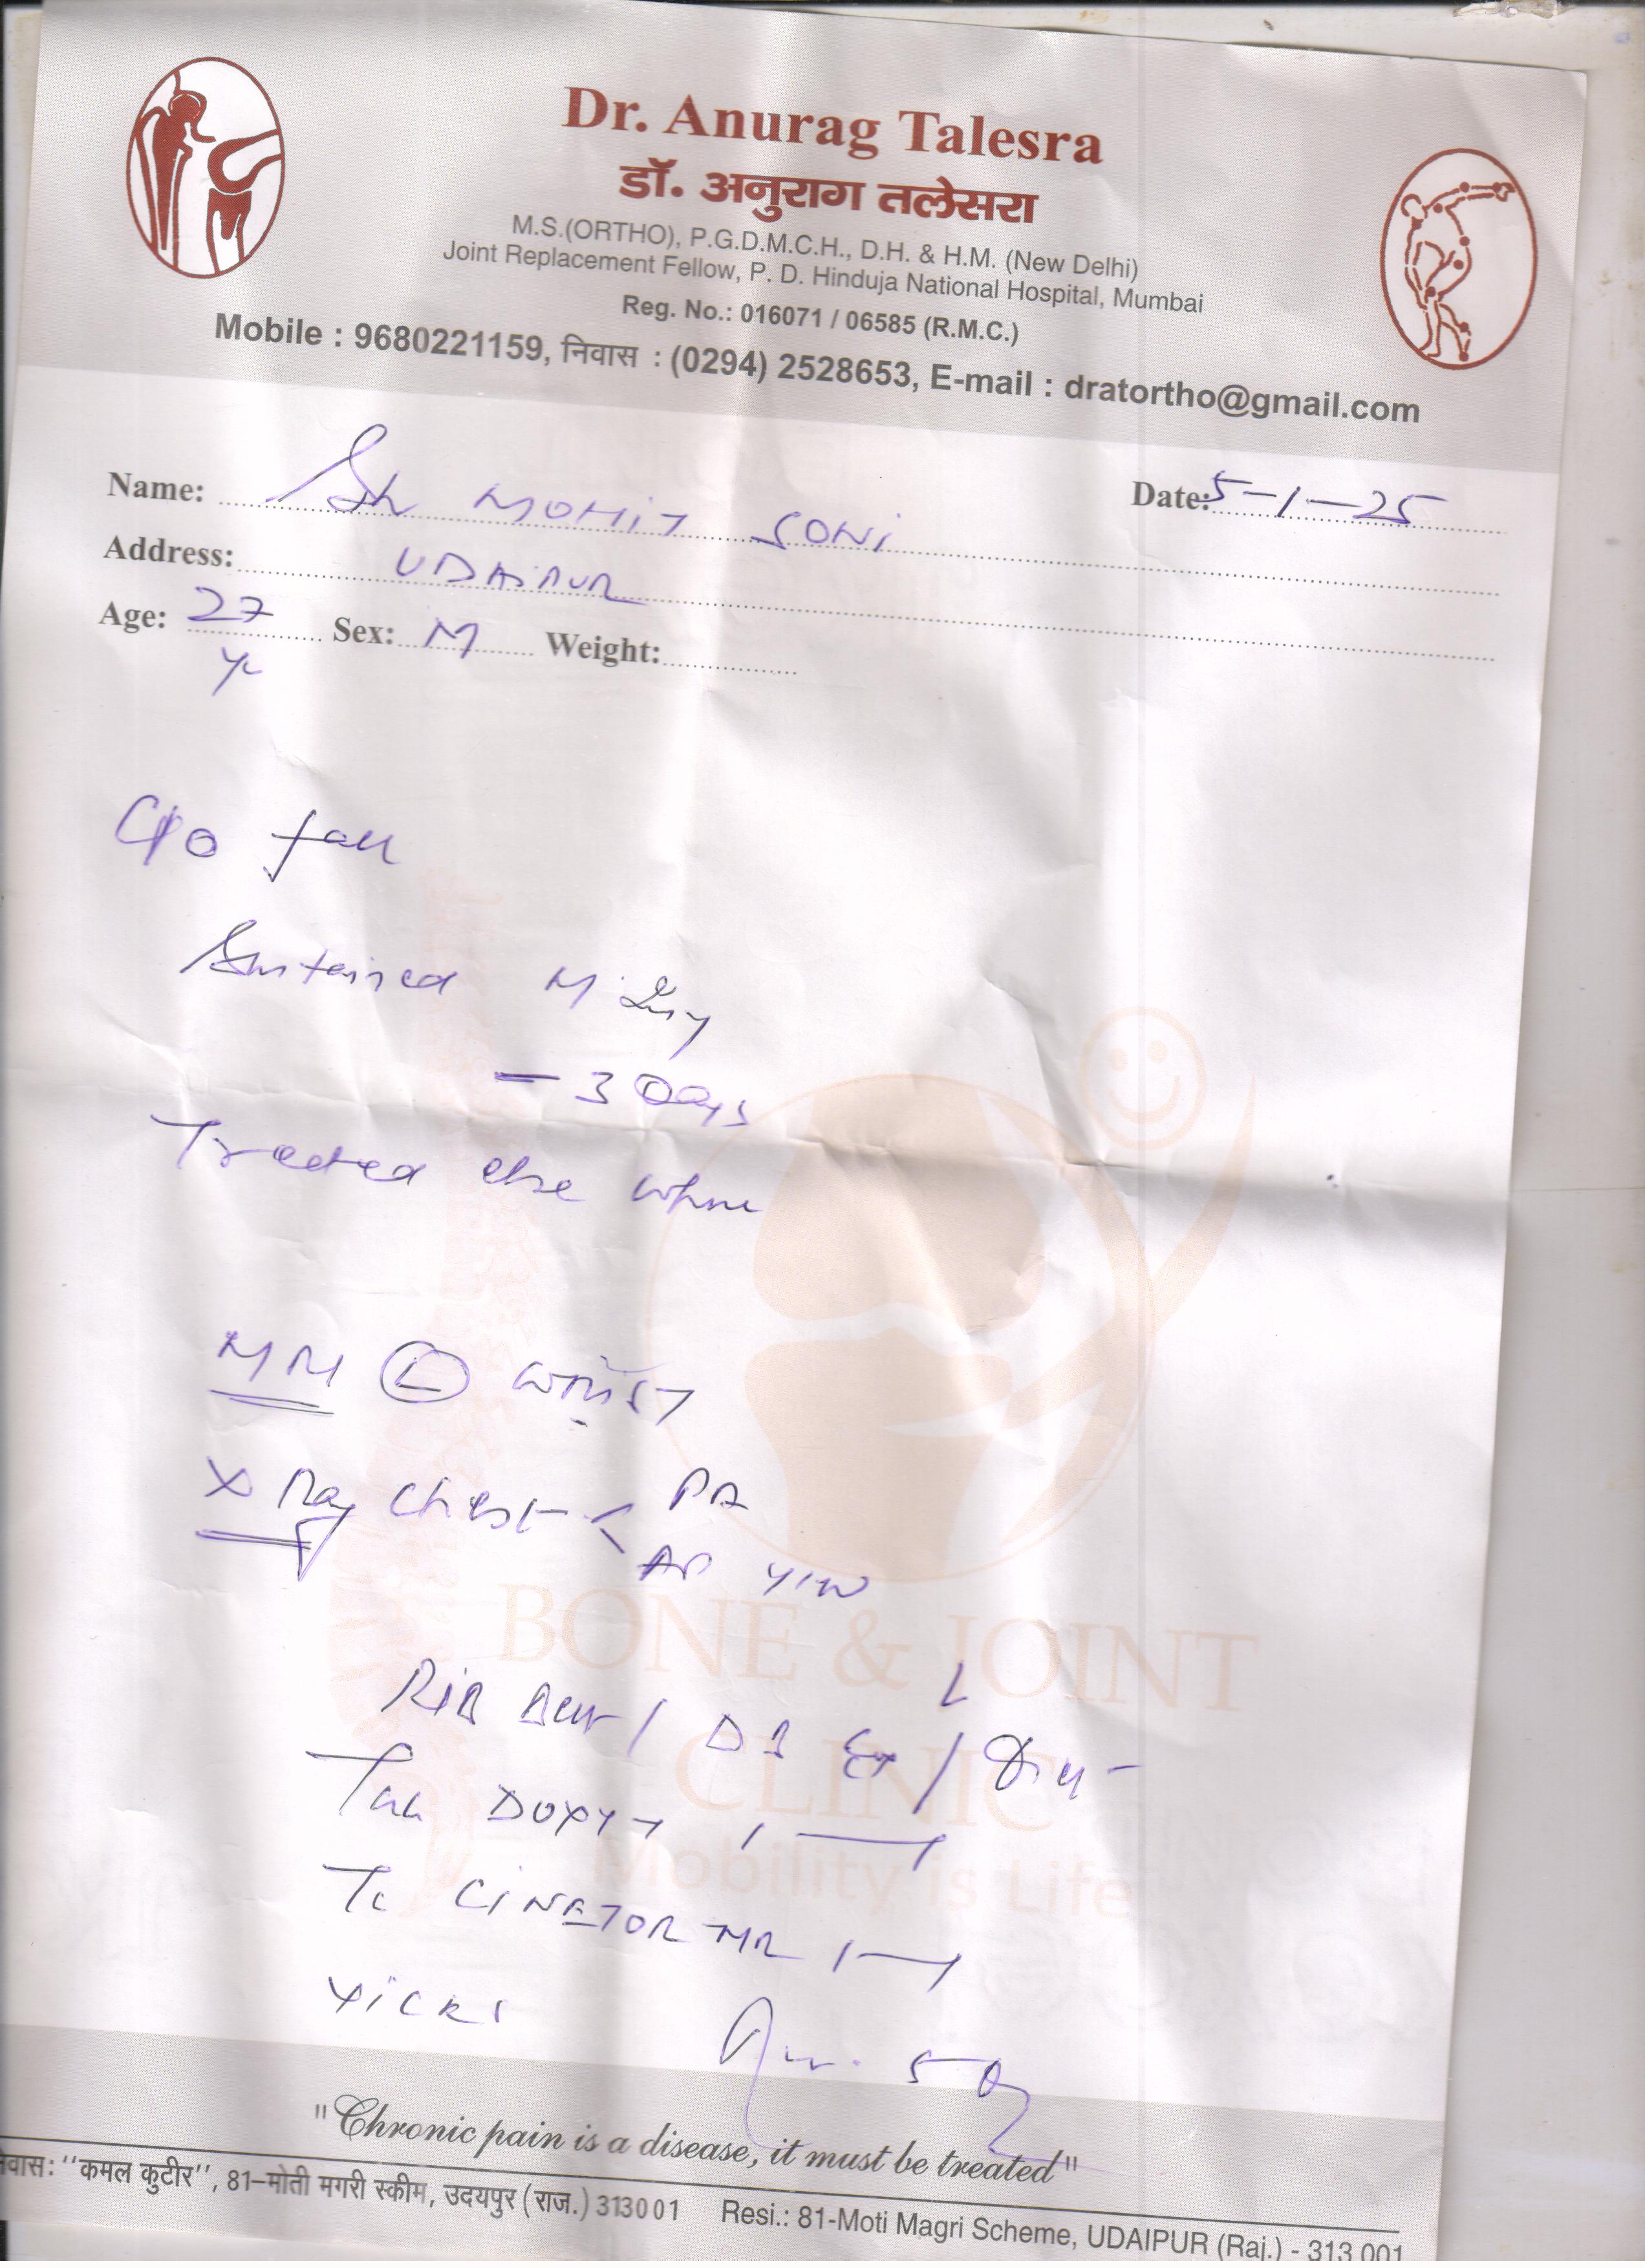 Dr. Anurag Talesra
डॉ. अनुराग तलेसरा
M.S.(ORTHO), P.G.D.M.C.H., D.H. & H.M. (New Delhi)
Joint Replacement Fellow, P. D. Hinduja National Hospital, Mumbai
Reg. No.: 016071 / 06585 (R.M.C.)
Mobile : 9680221159, निवास : (0294) 2528653, E-mail : dratortho@gmail.com
Name: Sh MOHIT SONI Date: 5-1-25
Address: UDAIPUR
Age: 27 Yr Sex: M Weight:
C/O fall
Sustained
- 3 Days
Treated else where
(L) wrist
X Ray Chest < PA
AP
RIB Belt /
Tab
CINETOR MR 1
5 Day
BONE & JOINT
CLINIC
Mobility is Life
"Chronic pain is a disease, it must be treated"
निवास: "कमल कुटीर", 81-मोती मगरी स्कीम, उदयपुर (राज.) 313001 Resi.: 81-Moti Magri Scheme, UDAIPUR (Raj.) - 313 001